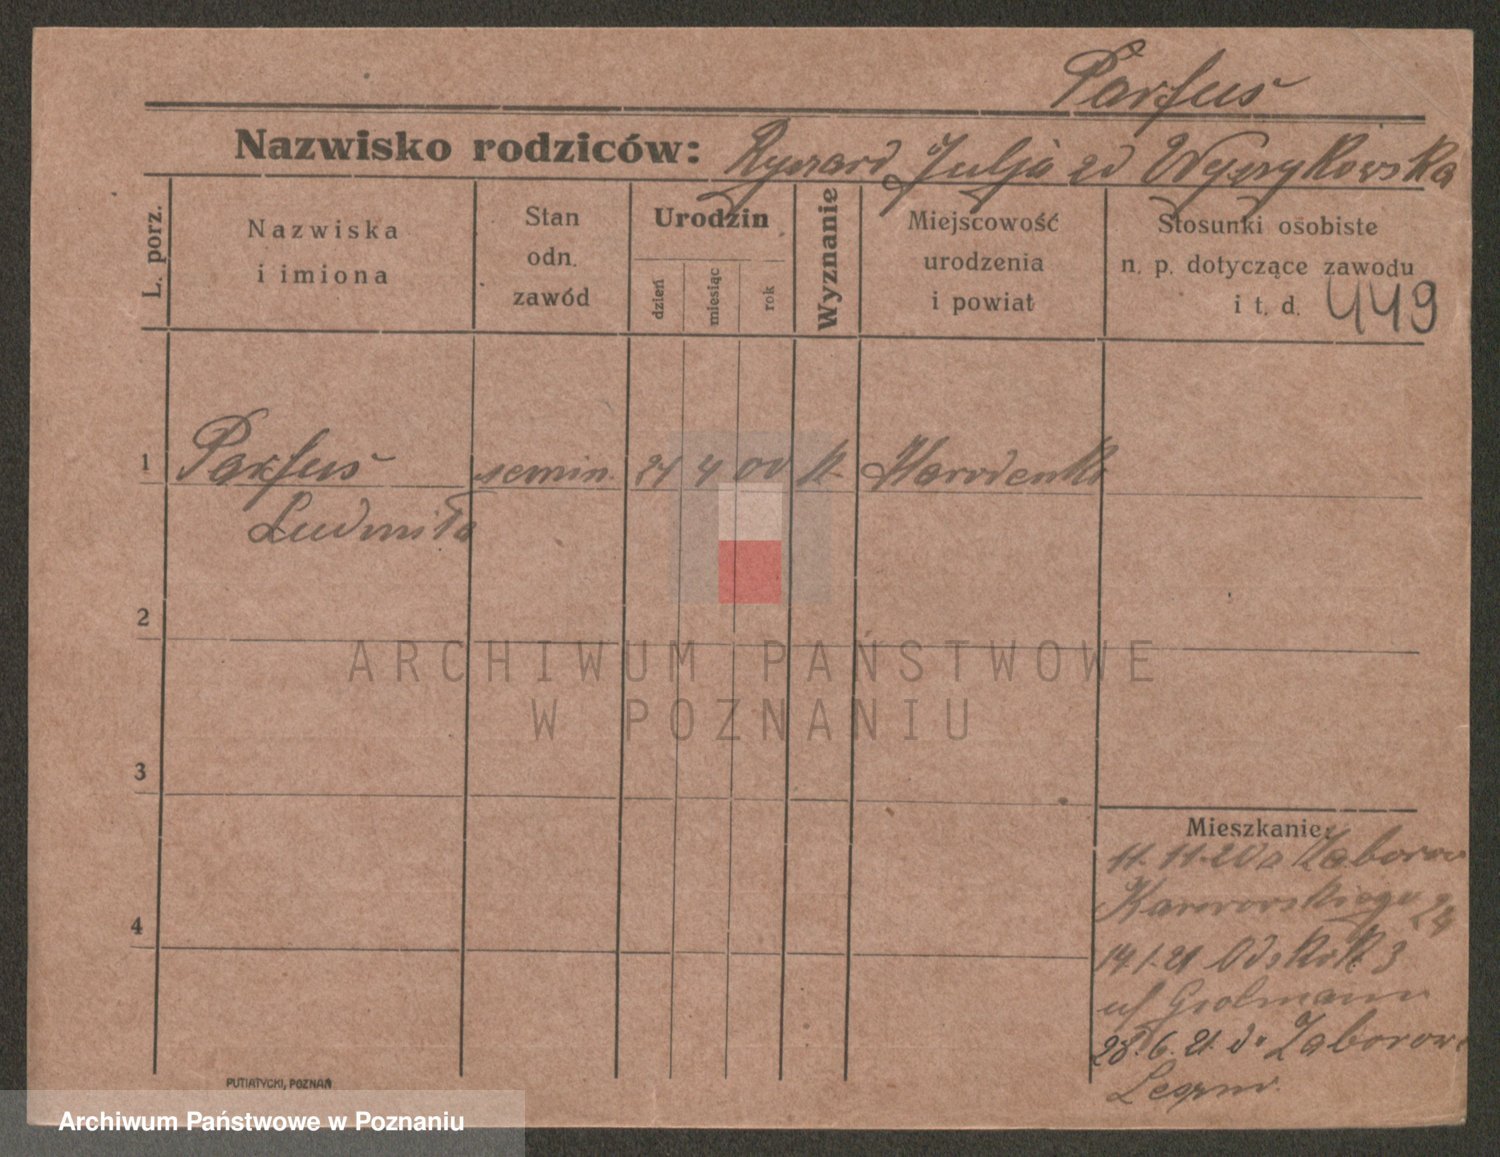 Parfus
Nazwisko rodziców: Ryszard Julja zd Wyzykowska
L. porz.
Nazwiska
i imiona
Stan
odn.
zawód
Urodzin
dzień
miesiąc
rok
Wyznanie
Miejscowość
urodzenia
i powiat
Stosunki osobiste
n. p. dotyczące zawodu
i t. d. 449
1 Parfus semin. 21 4 00 k.
Ludmiła
2
3
4
Mieszkanie:
11.11.20 Zaborow
24
14.1.21 3
Grolmann
28.6.21. do Zaborowo
PUTIATYCKI, POZNAŃ
ARCHIWUM PAŃSTWOWE
W POZNANIU
Archiwum Państwowe w Poznaniu